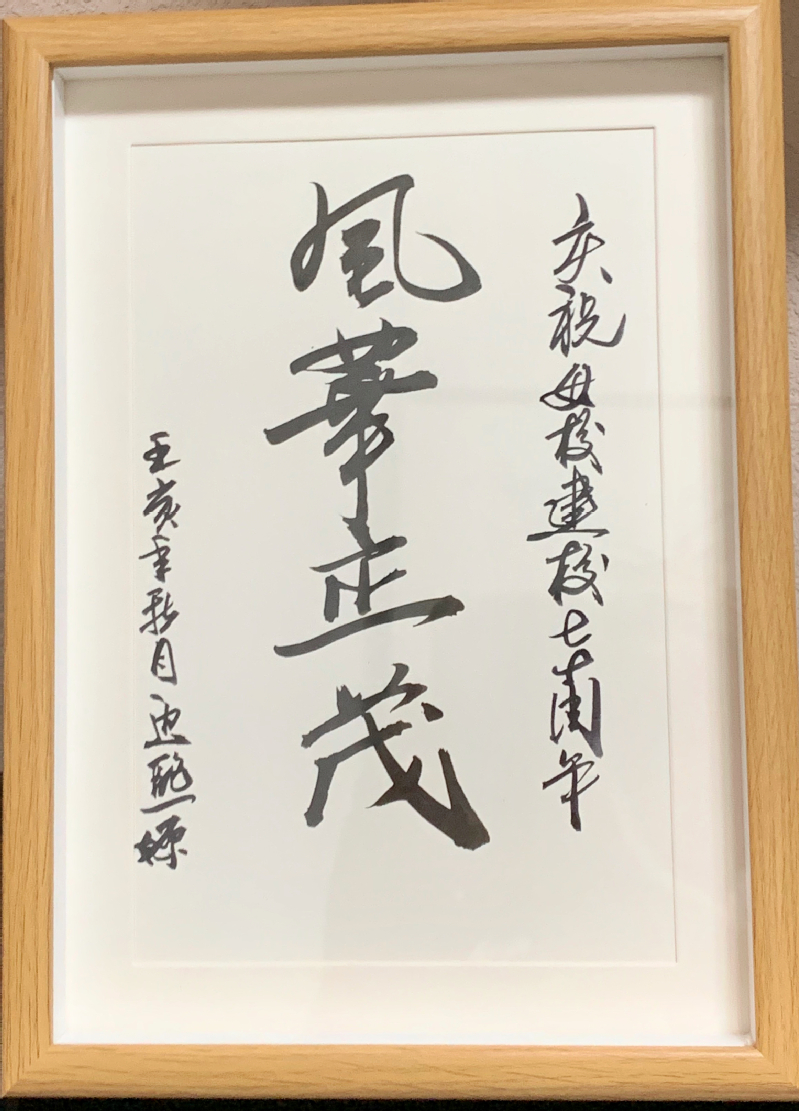 庆祝母校建校七十周年
風華正茂
亥年秋月